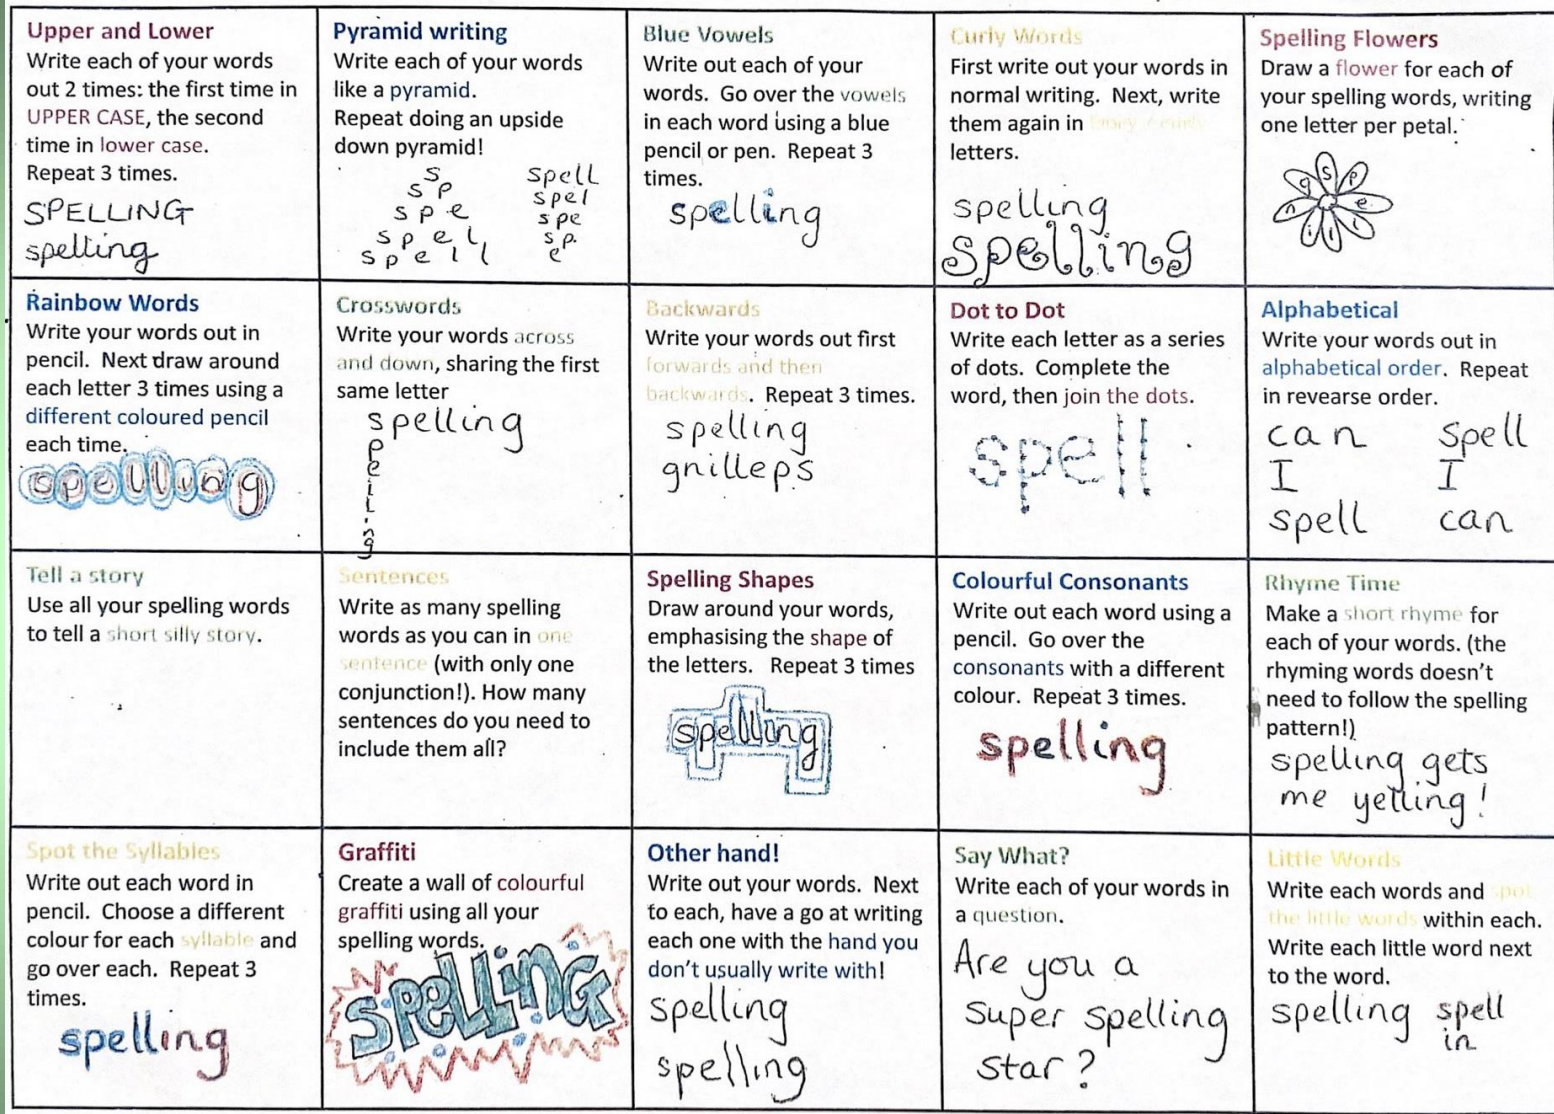 Upper and Lower
Write each of your words
out 2 times: the first time in
UPPER CASE, the second
time in lower case.
Repeat 3 times.
SPELLING
spelling
Pyramid writing
Write each of your words
like a pyramid.
Repeat doing an upside
down pyramid!
s
s p
s p e
s p e l
s p e l l
spell
spel
spe
sp.
e
Blue Vowels
Write out each of your
words. Go over the vowels
in each word using a blue
pencil or pen. Repeat 3
times.
spelling
Curly Words
First write out your words in
normal writing. Next, write
them again in
letters.
spelling
spelling
Spelling Flowers
Draw a flower for each of
your spelling words, writing
one letter per petal.
s p e l l i n g
Rainbow Words
Write your words out in
pencil. Next draw around
each letter 3 times using a
different coloured pencil
each time.
spelling
Crosswords
Write your words across
and down, sharing the first
same letter
spelling
p
e
l
l
i
n
g
Backwards
Write your words out first
forwards and then
backwards. Repeat 3 times.
spelling
gnilleps
Dot to Dot
Write each letter as a series
of dots. Complete the
word, then join the dots.
spell
Alphabetical
Write your words out in
alphabetical order. Repeat
in revearse order.
can spell
I I
spell can
Tell a story
Use all your spelling words
to tell a short silly story.
Sentences
Write as many spelling
words as you can in one
sentence (with only one
conjunction!). How many
sentences do you need to
include them all?
Spelling Shapes
Draw around your words,
emphasising the shape of
the letters. Repeat 3 times
spelling
Colourful Consonants
Write out each word using a
pencil. Go over the
consonants with a different
colour. Repeat 3 times.
spelling
Rhyme Time
Make a short rhyme for
each of your words. (the
rhyming words doesn't
need to follow the spelling
pattern!)
spelling gets
me yelling!
Spot the Syllables
Write out each word in
pencil. Choose a different
colour for each syllable and
go over each. Repeat 3
times.
spelling
Graffiti
Create a wall of colourful
graffiti using all your
spelling words.
SPELLiNG
Other hand!
Write out your words. Next
to each, have a go at writing
each one with the hand you
don't usually write with!
spelling
spelling
Say What?
Write each of your words in
a question.
Are you a
super spelling
star?
Little Words
Write each words and spot
the little words within each.
Write each little word next
to the word.
spelling spell
in